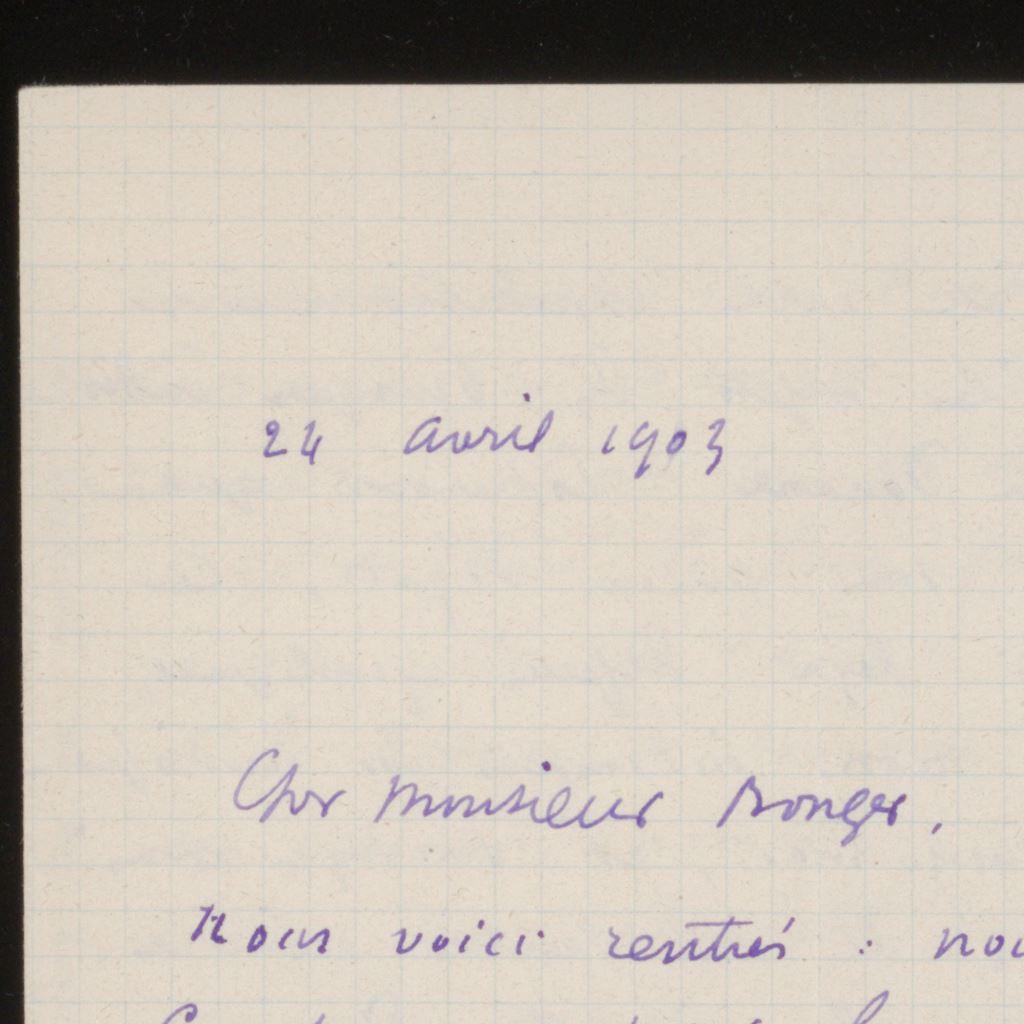 24 avril 1903
Cher Monsieur Bonger,
Nous voici rentrés : nou